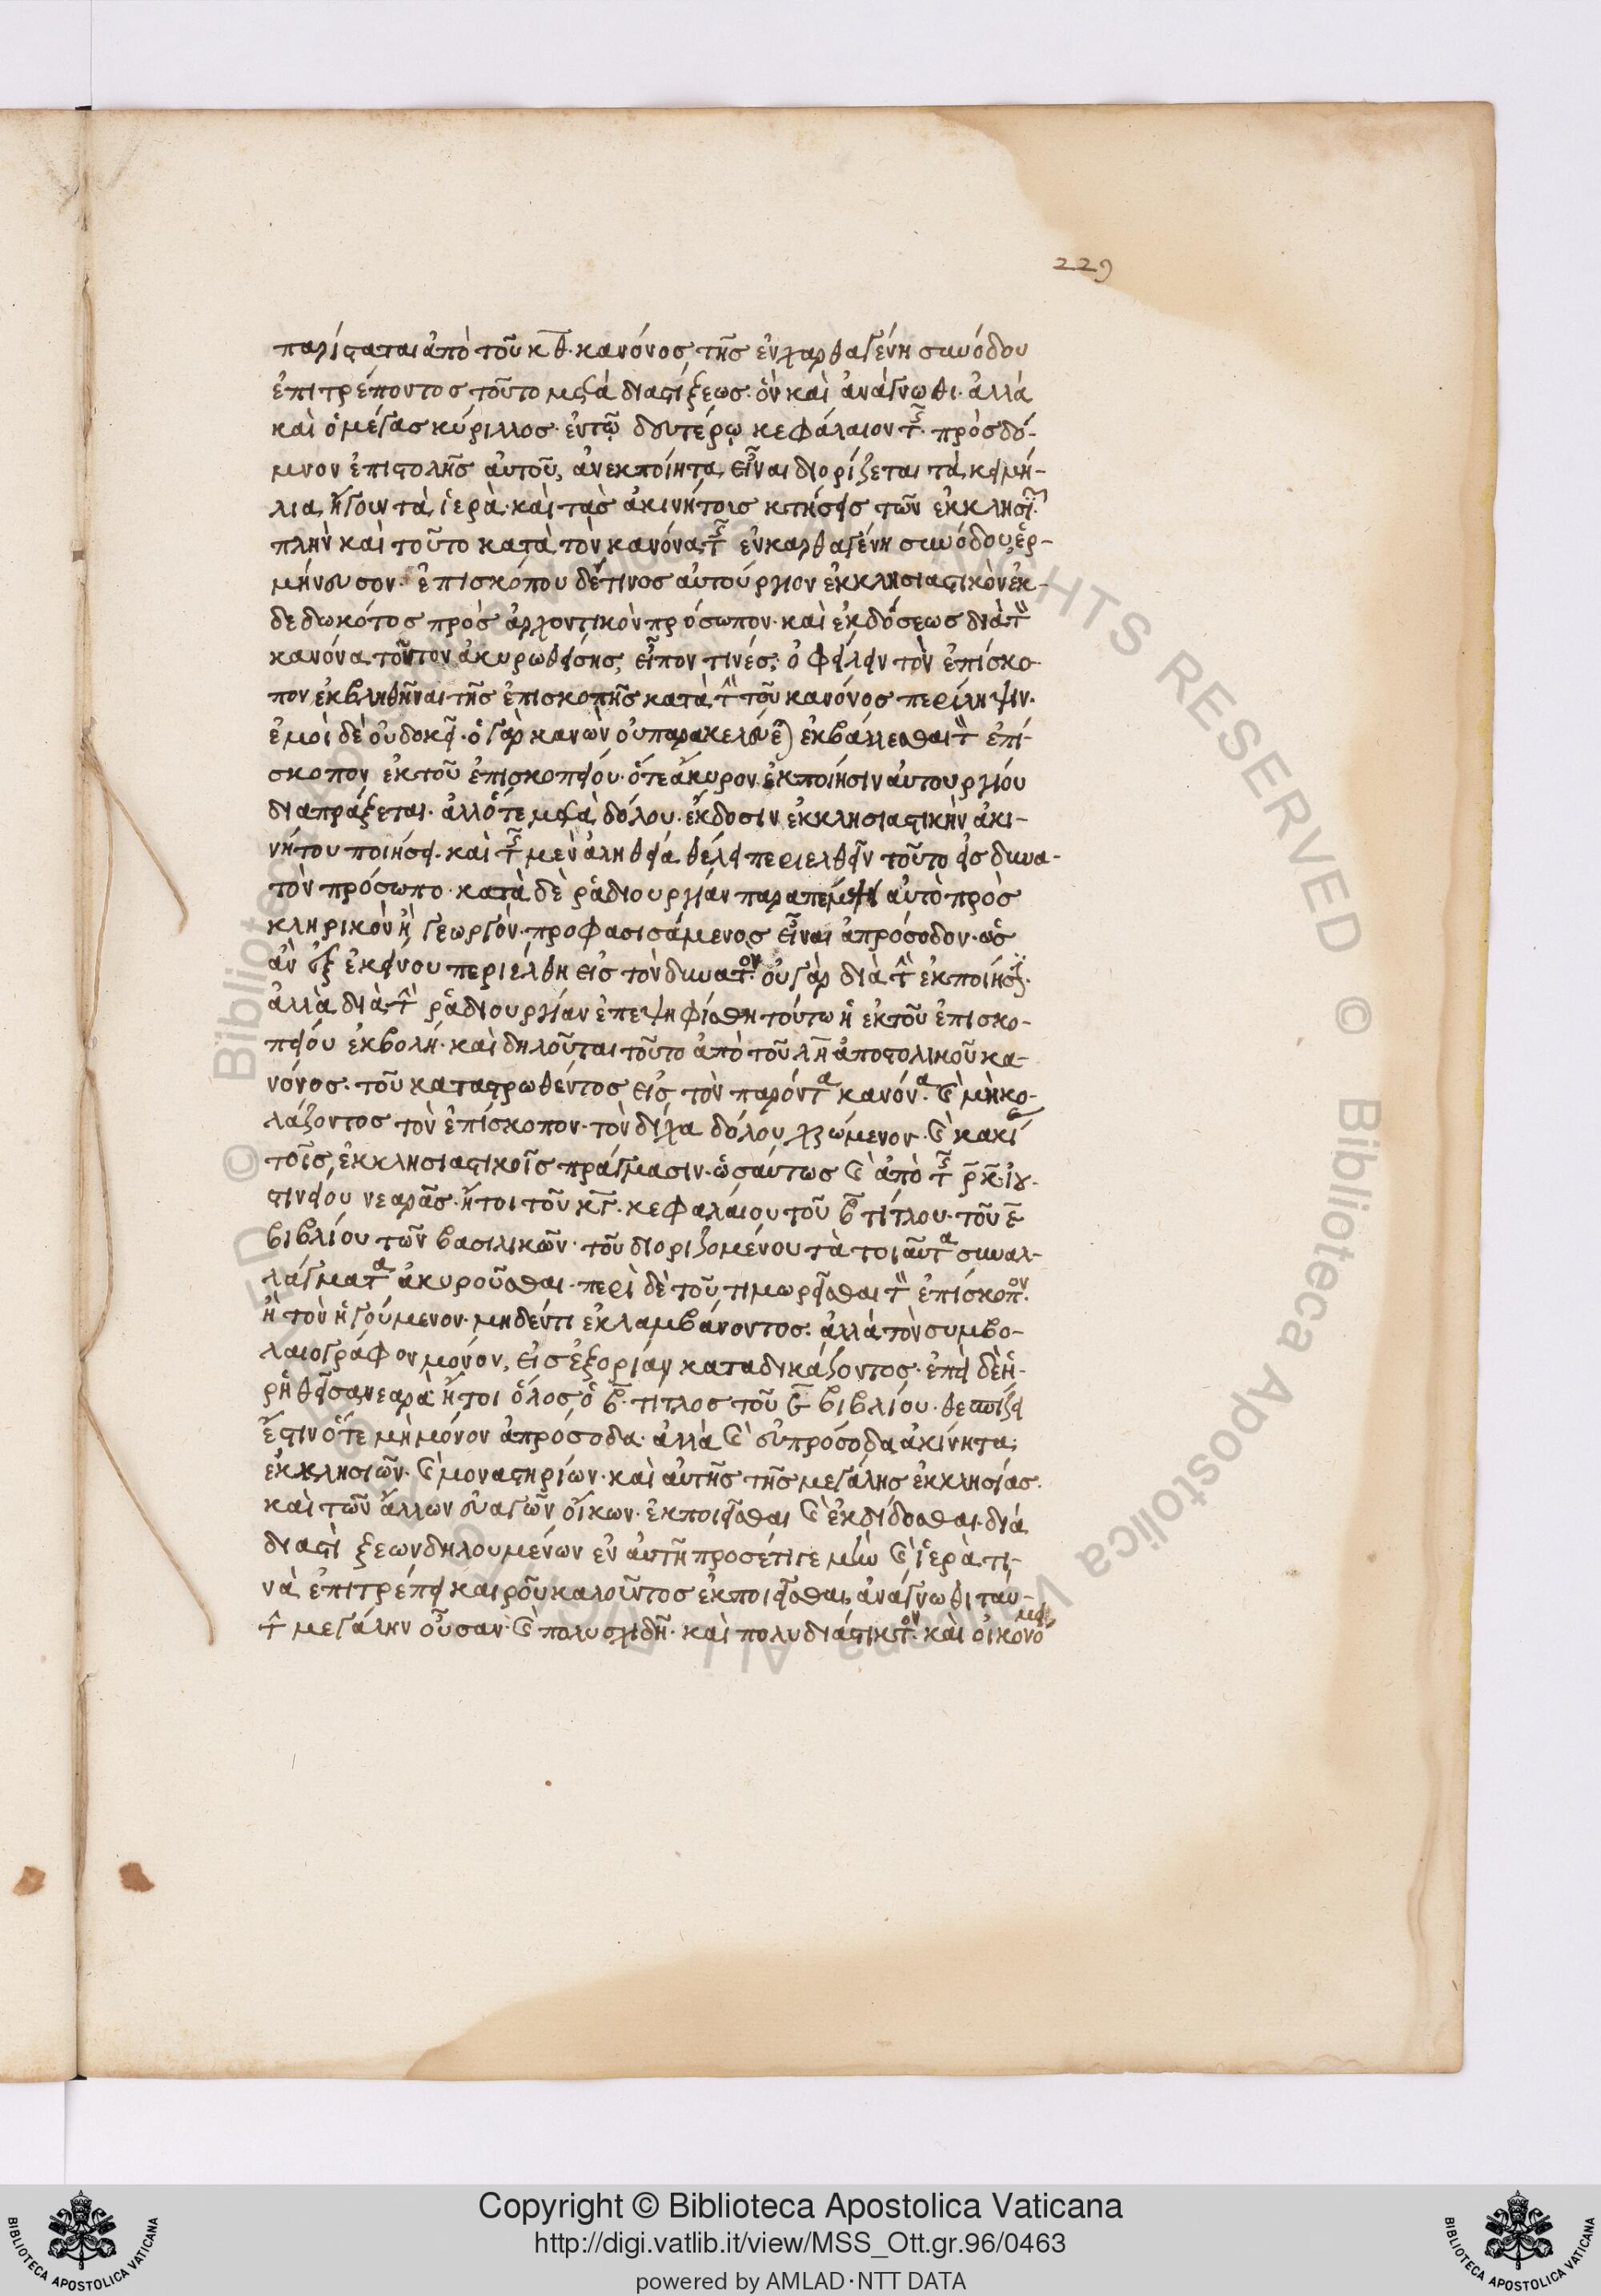 229
παρίσταται ἀπὸ τοῦ κθ· κανόνος, τῆς ἐν χαρθαγένη συνόδου
ἐπιτρέποντος τοῦτο μετὰ διαστίξεως· ὃν καὶ ἀνάγνωθι· ἀλλὰ
καὶ ὁ μέγας κύριλλος· ἐν τῷ δευτέρῳ κεφάλαιον τῆς πρὸς δό-
μνον ἐπιστολῆς αὐτοῦ, ἀνεκποίητα εἶναι διορίζεται τὰ κειμή-
λια, ἤγουν τὰ ἱερὰ· καὶ τὰς ἀκινήτοις κτήσεις τῶν ἐκκλησι
πλὴν καὶ τοῦτο κατὰ τὸν κανόνα τῆς ἐν καρθαγένη συνόδου ἑρ-
μήνευσον· ἐπισκόπου δέ τινος αὐτούργιον ἐκκλησιαστικὸν ἐκ-
δεδωκότος πρὸς ἀρχοντικὸν πρόσωπον· καὶ ἐκδόσεως διὰ τὸν
κανόνα τοῦτον ἀκυρωθείσης, εἶπον τινές, ὀφείλειν τὸν ἐπίσκο-
πον ἐκβληθῆναι τῆς ἐπισκοπῆς κατὰ τὴν τοῦ κανόνος περίληψιν·
ἐμοὶ δὲ οὐ δοκεῖ· ὁ γὰρ κανὼν οὐ παρακελεύεται ἐκβάλλεσθαι τὸν ἐπί-
σκοπον ἐκ τοῦ ἐπισκοπείου· ὅτε ἄκυρον ἐκποίησιν αὐτουργίου
διαπράξεται· ἀλλ' ὅτε μετὰ δόλου· ἔκδοσιν ἐκκλησιαστικὴν ἀκι-
νήτου ποιήσει· καὶ τῆς μὲν ἀληθείᾳ θέλει περιελθεῖν τοῦτο εἰς δυνα-
τὸν πρόσωπο· κατὰ δὲ ῥᾳδιουργίαν παραπέμψει αὐτὸ πρὸς
κληρικὸν ἢ γεωργὸν· προφασισάμενος εἶναι ἀπρόσοδον· ὡς
ἂν ἐξ ἐκείνου περιέλθη εἰς τὸν δυνατόν· οὐ γὰρ διὰ τὴν ἐκποίησιν·
ἀλλὰ διὰ τὴν ῥᾳδιουργίαν ἐπεψηφίσθη τούτω ἡ ἐκ τοῦ ἐπισκο-
πείου ἐκβολή· καὶ δηλοῦται τοῦτο ἀπὸ τοῦ λη ἀποστολικοῦ κα-
νόνος· τοῦ καταστρωθέντος εἰς τὸν παρόντα κανόνα· καὶ μὴ κο-
λάζοντος τὸν ἐπίσκοπον· τὸν δίχα δόλου χρώμενον· καὶ κακί
τοῖς ἐκκλησιαστικοῖς πράγμασιν· ὡσαύτως καὶ ἀπὸ τῆς ρκ ἰου-
στινείου νεαρᾶς· ἤτοι τοῦ κγ· κεφαλαίου τοῦ β τίτλου· τοῦ ε
βιβλίου τῶν βασιλικῶν· τοῦ διοριζομένου τὰ τοιαῦτα συναλ-
λάγματα ἀκυροῦσθαι· περὶ δὲ τοῦ τιμωρεῖσθαι τὸν ἐπίσκοπον·
ἢ τὸν ἡγούμενον· μηδέν τι ἐκλαμβάνοντος· ἀλλὰ τὸν συμβο-
λαιογράφον μόνον, εἰς ἐξορίαν καταδικάζοντος· ἐπεὶ δὲ ἡ-
ρηθεῖσα νεαρὰ ἤτοι ὅλος ὁ β· τίτλος τοῦ ε βιβλίου· θεσπίζει
ἔστιν ὅτε μὴ μόνον ἀπρόσοδα· ἀλλὰ καὶ εὐπρόσοδα ἀκίνητα,
ἐκκλησιῶν· καὶ μοναστηρίων· καὶ αὐτῆς τῆς μεγάλης ἐκκλησίας·
καὶ τῶν ἄλλων εὐαγῶν οἴκων· ἐκποιεῖσθαι καὶ ἐκδίδοσθαι· διὰ
διαστίξεων δηλουμένων ἐν αὐτῆ προσέτι γε μὴν καὶ ἱερὰ τι-
νὰ ἐπιτρέπει καιροῦ καλοῦντος ἐκποιεῖσθαι, ἀνάγνωθι ταύ-
τὴν μεγάλην οὖσαν· καὶ πολυσχιδῆ· καὶ πολυδιάστικτον· καὶ οἰκονομει
Copyright © Biblioteca Apostolica Vaticana
http://digi.vatlib.it/view/MSS_Ott.gr.96/0463
powered by AMLAD·NTT DATA